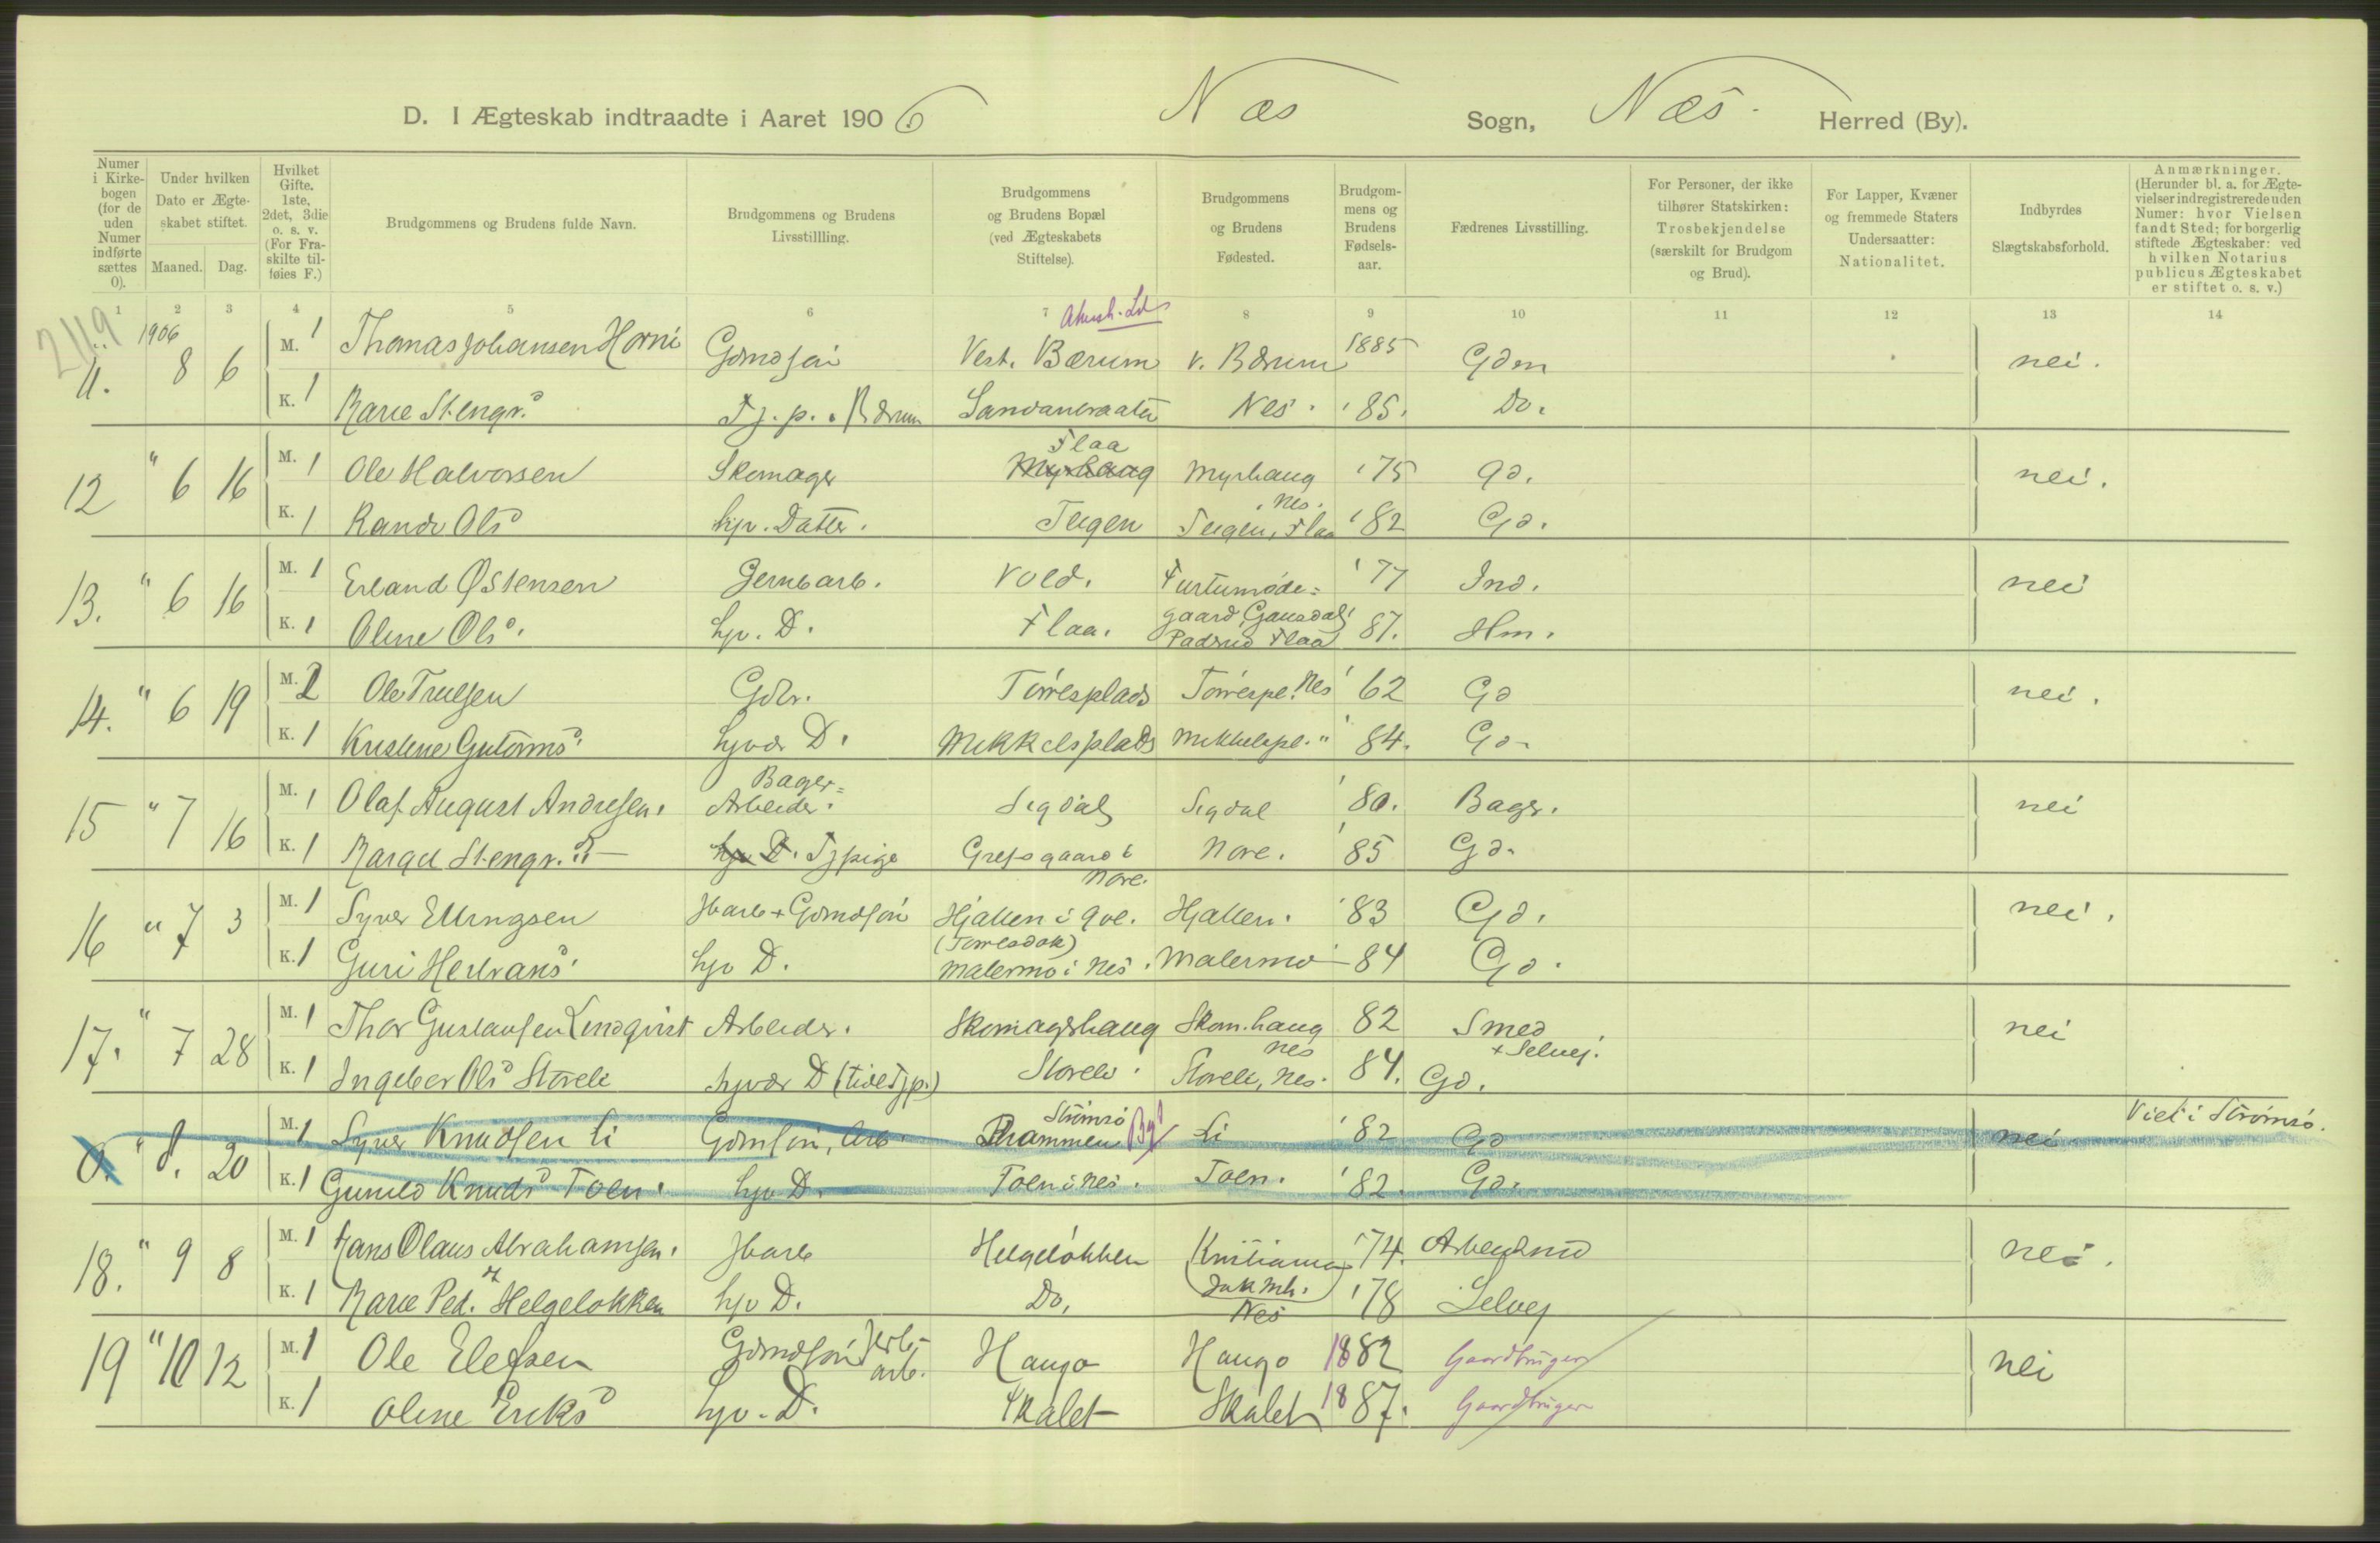 D. I Ægteskab indtraadte i Aaret 1906 Næs Sogn, Næs. Herred (By).
Numer i Kirkebogen (for de uden Numer indførte sættes 0).
Under hvilken Dato er Ægteskabet stiftet.
Maaned. Dag.
Hvilket Gifte. 1ste, 2det, 3die o. s. v. (For Fraskilte tilføies F.)
Brudgommens og Brudens fulde Navn.
Brudgommens og Brudens Livsstillling.
Brudgommens og Brudens Bopæl (ved Ægteskabets Stiftelse).
Brudgommens og Brudens Fødested.
Brudgommens og Brudens Fødselsaar.
Fædrenes Livsstilling.
For Personer, der ikke tilhører Statskirken: Trosbekjendelse (særskilt for Brudgom og Brud).
For Lapper, Kvæner og fremmede Staters Undersaatter: Nationalitet.
Indbyrdes Slægtskabsforhold.
Anmærkninger. (Herunder bl. a. for Ægtevielser indregistrerede uden Numer: hvor Vielsen fandt Sted; for borgerlig stiftede Ægteskaber: ved hvilken Notarius publicus Ægteskabet er stiftet o. s. v.)
1 2 3 4 5 6 7 8 9 10 11 12 13 14
2119 1906
11. 8 6 M. 1 Thomas Johansen Horni Gdmdsøn Vest. Bærum v. Bærum 1885 Gdm nei.
K. 1 Marie Stengr.d Tj. p. i Bærum Nes. '85. Do.
Flaa
12 " 6 16 M. 1 Ole Halvorsen Skomager Myrhaug Myrhaug Nes. '75 Gd. nei.
K. 1 Randi Olsd hjv. Datter. Teigen Teigen, Flaa '82 Gd.
13. " 6 16 M. 1 Erland Østensen Jernbarb. Vold. gaard, Gausdal '77 Ind. nei
K. 1 Oline Olsd. hjv. D. Flaa. Flaa 87. Hm.
14. " 6 19 M. 2 Ole Trulsen Gdbr. Törresplads Törrespl. Nes '62 Gd nei.
K. 1 Kristine Gutormsd. hjvær D. Mikkelsplads Mikkelspl. " 84. Gd.
15 " 7 16 M. 1 Olaf August Andresen. Bager= Arbeider. Sigdal Sigdal '80. Bager. nei
K. 1 Margit Stengr.d. hjv D. Tjpige Grefsgaard i Nore. Nore. '85 Gd.
16 " 7 3 M. 1 Syver Ellingsen Jbarb + Gdmdsøn Hjallen i Hjallen. '83 Gd. nei.
K. 1 Guri Herbransd. hjv D. Malermo i Nes. Malermo 84 Gd.
17. " 7 28 M. 1 Thor Gustavsen Lindqvist Arbeider. Skomagerhaug Skom.haug Nes 82 Smed + Selvej. nei
K. 1 Ingeber Olsd Störeli hjvær D (tidl Tjp.) Storeli. Storeli, Nes. 84. Gd.
0. " 8. 20 M. 1 Syver Knudsen Li Gdmsøn, Arb. Strömsö Drammen By Li '82 Gd nei Viet i Strömsö.
K. 1 Gunild Knudsd Toen. hjv D. Toen i Nes. Toen. '82. Gd.
18. " 9 8 M. 1 Hans Olaus Abrahamsen. Jbarb Helgelökken Kristiania (Jak Mh.) '74. Arbeidsmd nei.
K. 1 Marie Ped.d Helgeløkken hjv D. Do. Nes '78 Selvej
19 " 10 12 M. 1 Ole Elefsen Gdmdsøn Jerb- arb. Haugo Haugo 1882 Gaardbruger nei
K. 1 Oline Eriksd hjv. D. Skalet Skalet 1887. Gaardbruger